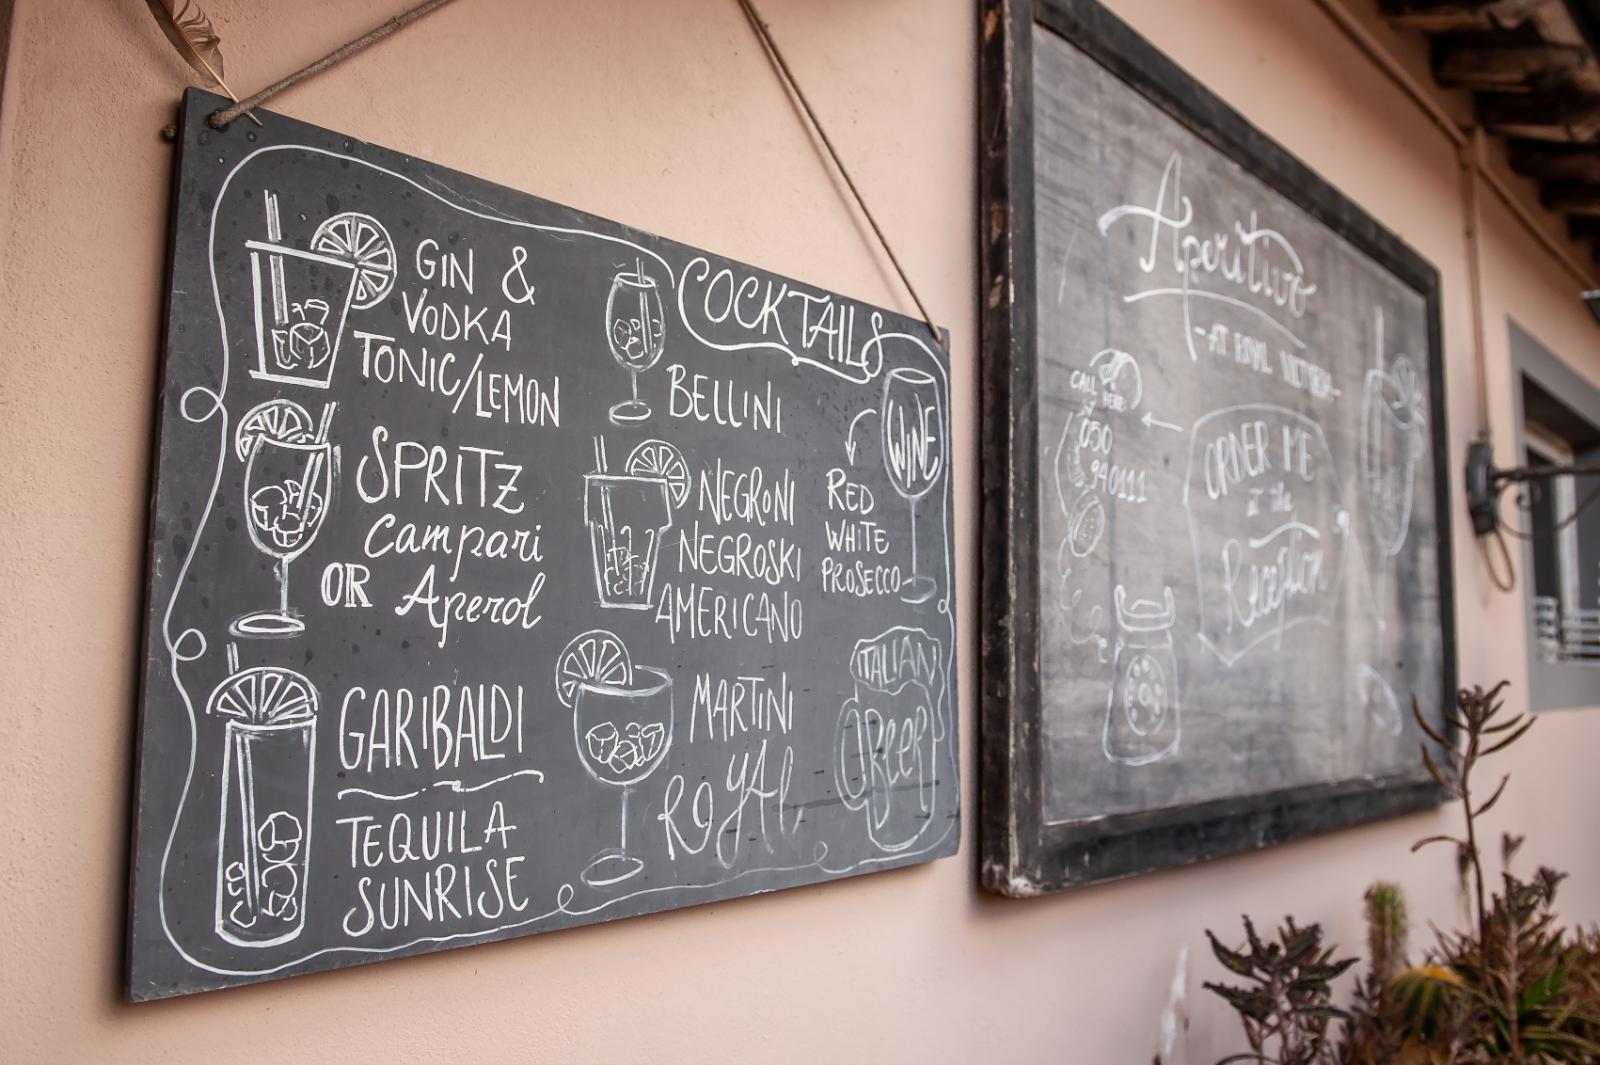 COCKTAILS
GIN &
VODKA
TONIC/LEMON
SPRITZ
Campari
OR Aperol
GARIBALDI
TEQUILA
SUNRISE
BELLINI
NEGRONI
NEGROSKI
AMERICANO
MARTINI
ROYAL
WINE
RED
WHITE
PROSECCO
ITALIAN
BEER
Aperitivo
CALL
HERE
050
940111
ORDER ME
at the
Reception